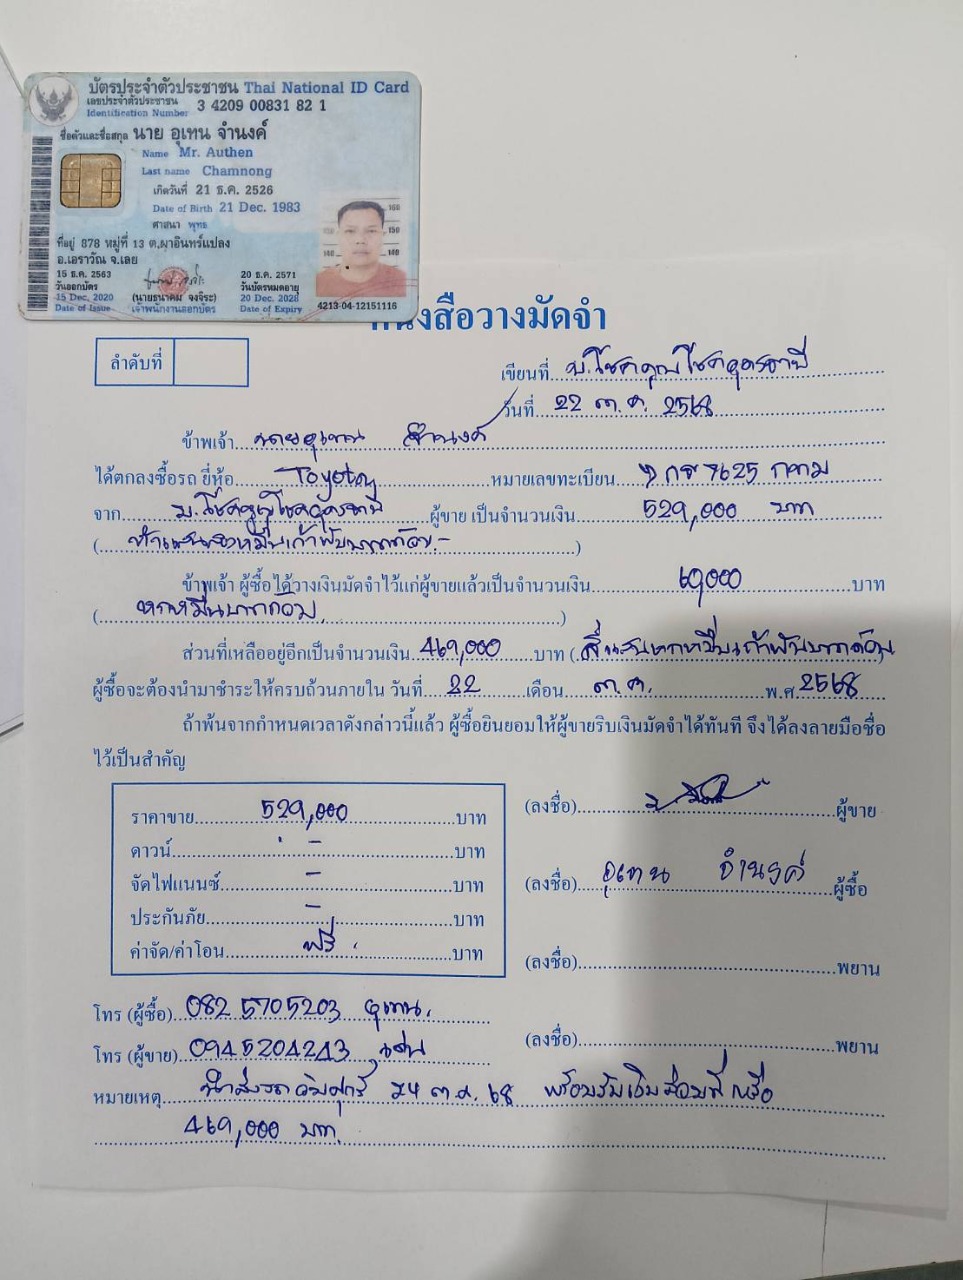 บัตรประจำตัวประชาชน Thai National ID Card
เลขประจำตัวประชาชน 3 4209 00831 82 1
Identification Number
ชื่อตัวและชื่อสกุล นาย อุเทน จำนงค์
Name Mr. Authen
Last name Chamnong
เกิดวันที่ 21 ธ.ค. 2526
Date of Birth 21 Dec. 1983
ศาสนา พุทธ
ที่อยู่ 878 หมู่ที่ 13 ต.ผาอินทร์แปลง
อ.เอราวัณ จ.เลย
15 ธ.ค. 2563 20 ธ.ค. 2571
วันออกบัตร (นายธนาคม จงจิระ) วันบัตรหมดอายุ
15 Dec. 2020 เจ้าพนักงานออกบัตร 20 Dec. 2028
Date of Issue Date of Expiry 4213-04-12151116
หนังสือวางมัดจำ
ลำดับที่
เขียนที่ บ.โชคคูณโชคอุดรธานี
วันที่ 22 ต.ค. 2568
ข้าพเจ้า นายอุเทน จำนงค์
ได้ตกลงซื้อรถ ยี่ห้อ Toyota หมายเลขทะเบียน 7625 กทม
จาก บ.โชคคูณโชคอุดรธานี ผู้ขาย เป็นจำนวนเงิน 529,000 บาท
(ห้าแสนสองหมื่นเก้าพันบาทถ้วน.-)
ข้าพเจ้า ผู้ซื้อ ได้วางเงินมัดจำไว้แก่ผู้ขายแล้วเป็นจำนวนเงิน 60,000 บาท
(หกหมื่นบาทถ้วน)
ส่วนที่เหลืออยู่อีกเป็นจำนวนเงิน 469,000 บาท (สี่แสนหกหมื่นเก้าพันบาทถ้วน)
ผู้ซื้อจะต้องนำมาชำระให้ครบถ้วนภายใน วันที่ 22 เดือน ต.ค. พ.ศ 2568
ถ้าพ้นจากกำหนดเวลาดังกล่าวนี้แล้ว ผู้ซื้อยินยอมให้ผู้ขายริบเงินมัดจำได้ทันที จึงได้ลงลายมือชื่อ
ไว้เป็นสำคัญ
ราคาขาย 529,000 บาท
ดาวน์ - บาท
จัดไฟแนนซ์ - บาท
ประกันภัย - บาท
ค่าจัด/ค่าโอน ฟรี บาท
(ลงชื่อ) ผู้ขาย
(ลงชื่อ) อุเทน จำนงค์ ผู้ซื้อ
(ลงชื่อ) พยาน
(ลงชื่อ) พยาน
โทร (ผู้ซื้อ) 082 5705203 อุเทน.
โทร (ผู้ขาย) 0945204243
หมายเหตุ นำส่งรถวันศุกร์ 24 ต.ค. 68 พร้อมรับเงินส่วนที่เหลือ
469,000 บาท.